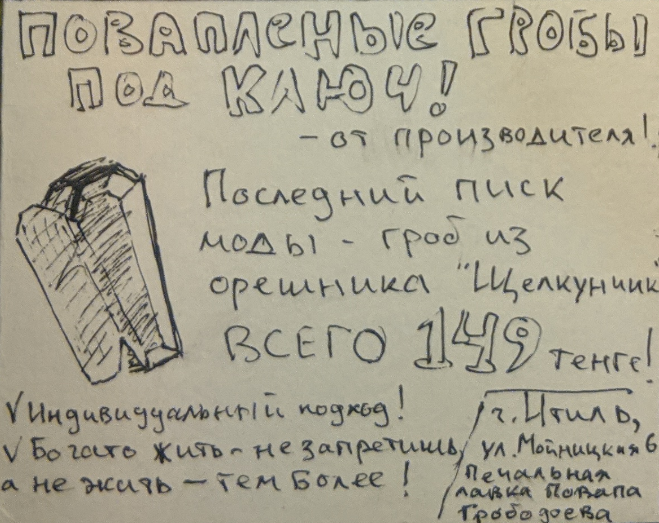 ПОВАПЛЕНЫЕ ГРОБЫ
ПОД КЛЮЧ!
- от производителя!
Последний писк
моды - гроб из
орешника "Щелкунчик"
ВСЕГО 149 тенге!
√ Индивидуальный подход!
√ Богато жить - не запретишь,
а не жить - тем более!
г. Итиль,
ул. Мойницкая 6
Печальная
лавка Повапа
Грободоева